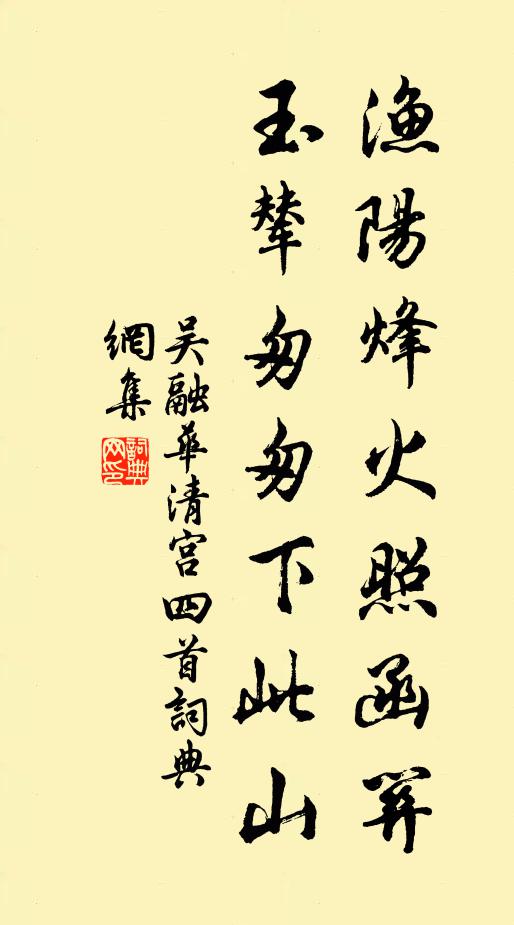 漁陽烽火照函關
玉輦匆匆下此山
吴融華清宫四首詞典
網集
詞典網印